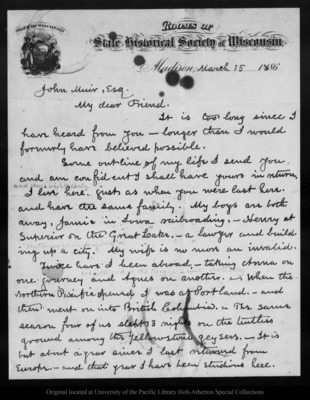 STATE OF WISCONSIN
ROOMS OF
State Historical Society of Wisconsin
Madison, March 15 1886
John Muir, Esq.
My dear Friend.
It is too long since I
have heard from you — longer than I would
formerly have believed possible.
Some outline of my life I send you
and am confident I shall have yours in return.
I live here, just as when you were last here.
and have the same family. My boys are both
away, Jamie in Iowa railroading, — Henry at
Superior on the Great Lake, — a lawyer and build-
ing up a city. My wife is no more an invalid.
Twice have I been abroad, — taking Anna on
one journey and Agnes on another. — When the
Northern Pacific opened I was at Portland, — and
then went on into British Columbia. — The same
season four of us slept 13 nights on the
ground among the Yellowstone geysers. — It is
but about a year since I last returned from
Europe. — and that year I have been studious here.
Original located at University of the Pacific Library Holt-Atherton Special Collections